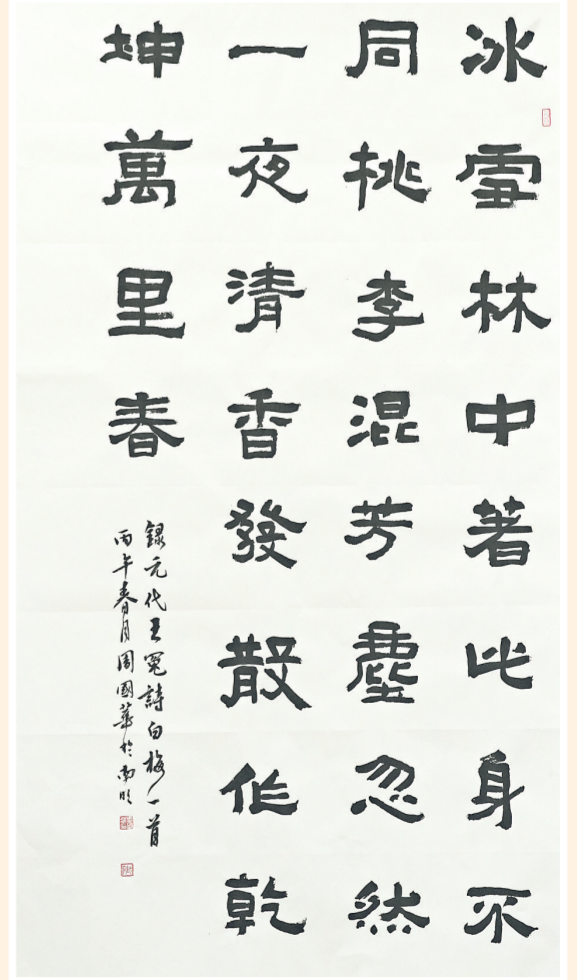 冰雪林中著此身不
同桃李混芳塵忽然
一夜清香發散作乾
坤萬里春
錄元代王冕詩白梅一首
丙午春月周國華於南